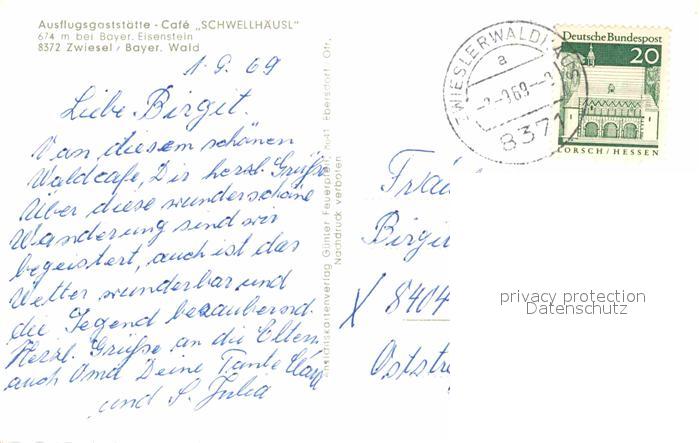 Ausflugsgaststätte - Café „SCHWELLHÄUSL"
674 m bei Bayer. Eisenstein
8372 Zwiesel / Bayer. Wald
1.9.69
Liebe Birgit.
Von diesem schönen
Waldcafe, Dir herzl. Grüße
Über diese wunderschöne
Wanderung sind wir
begeistert, auch ist das
Wetter wunderbar und
die Gegend bezaubernd.
Herzl. Grüße an die Eltern
auch Oma Deine Tante
und S. Julia
Ansichtskartenverlag Günter Feuerpfeil, 8641 Ebersdorf Ofr.
Nachdruck verboten
ZWIESLERWALDHAUS
a
-2.-9.69--9
8371
Deutsche Bundespost
20
LORSCH/HESSEN
Birgi
8404
Oststr
privacy protection
Datenschutz